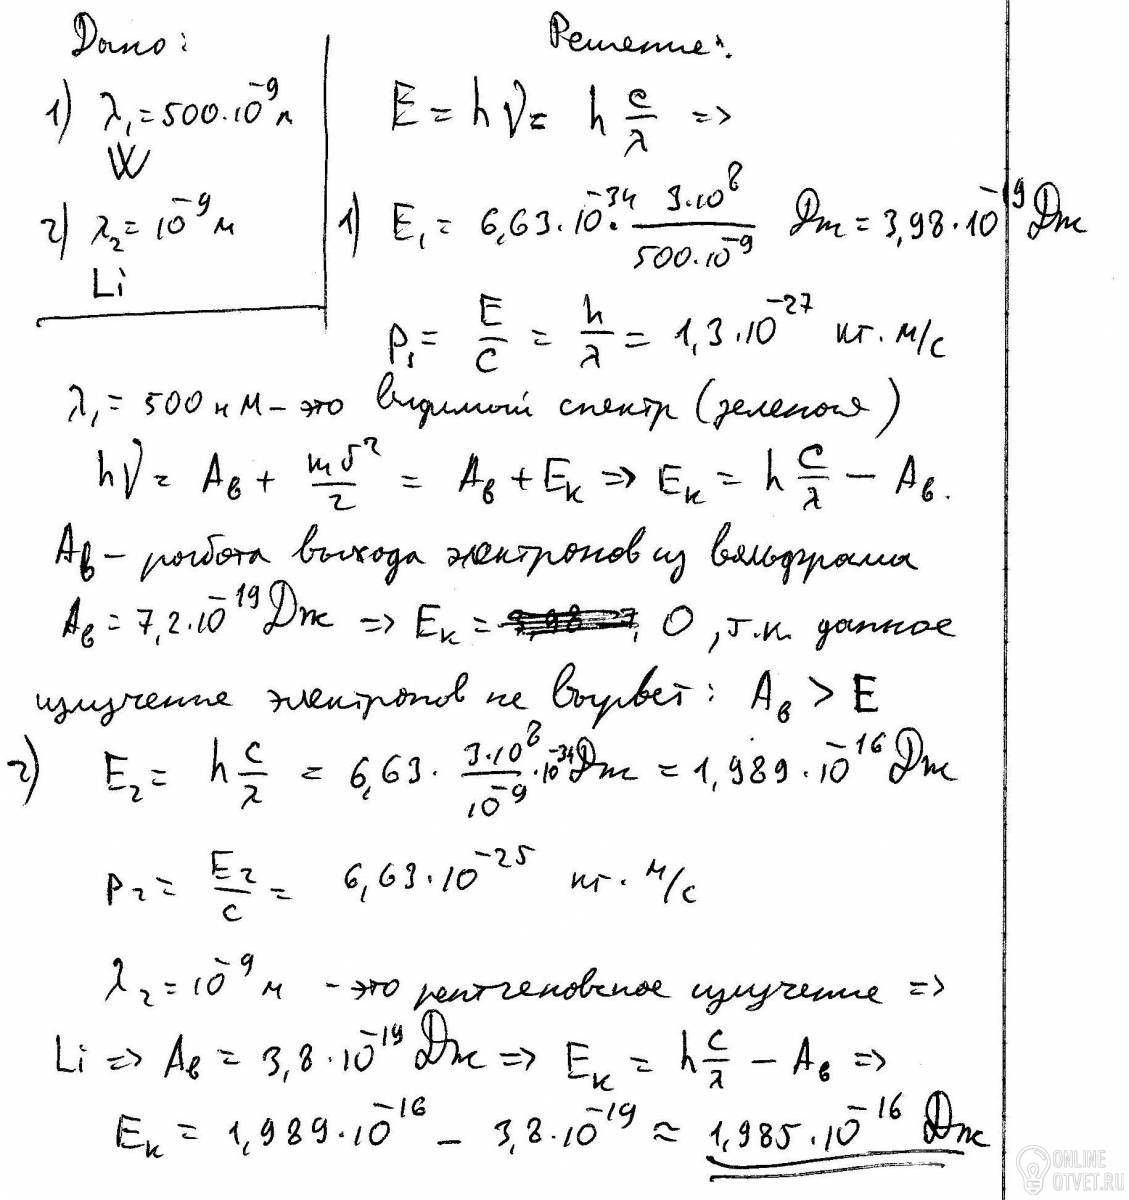 Дано:
1) λ₁ = 500·10⁻⁹ м
W
2) λ₂ = 10⁻⁹ м
Li
Решение:
E = hν = h c/λ =>
1) E₁ = 6,63·10⁻³⁴· 3·10⁸/500·10⁻⁹ Дж = 3,98·10⁻¹⁹ Дж
p₁ = E/c = h/λ = 1,3·10⁻²⁷ кг·м/с
λ₁ = 500 нм – это видимый спектр (зеленая)
hν = Aв + mυ²/2 = Aв + Eк => Eк = h c/λ – Aв.
Aв – работа выхода электронов из вольфрама
Aв = 7,2·10⁻¹⁹ Дж => Eк = 0, т.к. данное
излучение электронов не вырвет: Aв > E
2) E₂ = h c/λ = 6,63· 3·10⁸/10⁻⁹ ·10⁻³⁴ Дж = 1,989·10⁻¹⁶ Дж
p₂ = E₂/c = 6,63·10⁻²⁵ кг·м/с
λ₂ = 10⁻⁹ м – это рентгеновское излучение =>
Li => Aв = 3,8·10⁻¹⁹ Дж => Eк = h c/λ – Aв =>
Eк = 1,989·10⁻¹⁶ – 3,8·10⁻¹⁹ ≈ 1,985·10⁻¹⁶ Дж
ONLINE
OTVET.RU